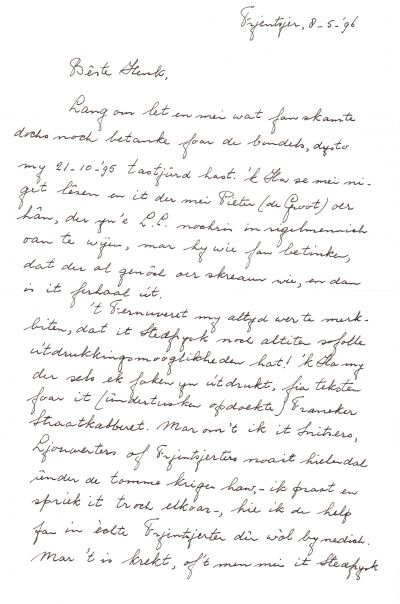 Frjentsjer, 8-5-'96
Bêste Henk,
Lang om let en mei wat fan skamte
dochs noch betanke foar de bundels, dysto
my 21-10-'95 tastjûrd hast. 'k Ha se mei ni-
get lêzen en it der mei Pieter (de Groot) oer
hân, der yn'e L.C. nochris in rigelmennich
oan te wijen, mar hy wie fan betinken,
dat der al genôch oer skreaun wie, en dan
is it ferhaal út.
't Fernuveret my altyd wer te merk-
biten, dat it Stedfrysk noch altiten sofolle
útdrukkingsmooglikheden hat! 'k Ha my
der sels ek faken yn útdrukt, fia teksten
foar it (ûndertusken opdoekte) Franeker
Straatkabberet. Mar om't ik it Snitsers,
Ljouwerters of Frjentsjerters noait hielendal
ûnder de tomme krigen haw, - ik praat en
spriek it troch elkoar -, hie ik de help
fan in echte Frjentsjerter dêr wól by nedich.
Mar 't is krekt, of't men mei it Stedfrysk